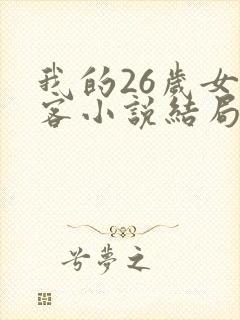 我的26歲女
客小說結局
兮夢之